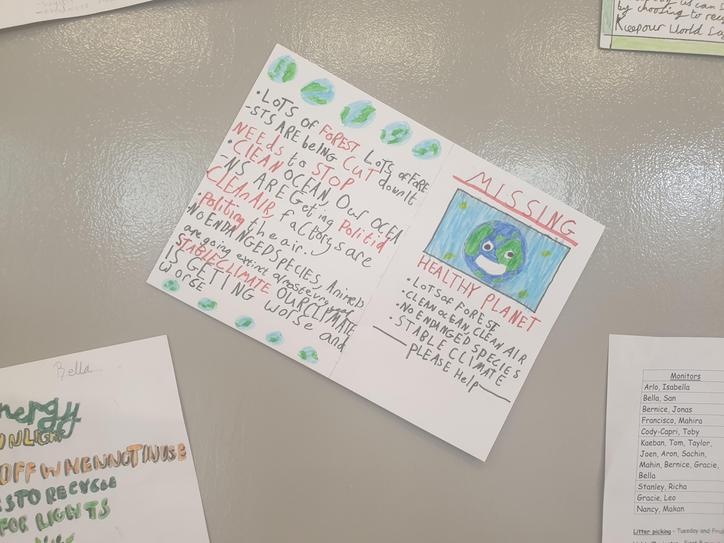 by choosing to
Keepour World
• LOTS OF FOREST LOTS OF FORE
-STS ARE being CUT down It
NEEDS to STOP
• CLEAN OCEAN, Our OCEA
-NS ARE Getting Politid
CLEAN AIR, factorys are
Politing the air.
NO ENDANGED SPECIES, Animels
are going extinct
STABLE CLIMATE OUR CLIMATE
IS GETTING Worse and
Worse
MISSING
HEALTHY PLANET
• LOTS of FOREST
• CLEAN OCEAN, CLEAN AIR
• NO ENDANGED SPECIES
• STABLE CLIMATE
PLEASE Help
Bella
nergy
ON LIGHT
OFF WHEN NOT IN USE
S TO RECYCLE
FOR LIGHTS
Monitors
Arlo, Isabella
Bella, San
Bernice, Jonas
Francisco, Mahira
Cody-Capri, Toby
Kaeban, Tom, Taylor,
Joen, Aron, Sachin,
Mahin, Bernice, Gracie,
Bella
Stanley, Richa
Gracie, Leo
Nancy, Makan
Litter picking - Tuesday and